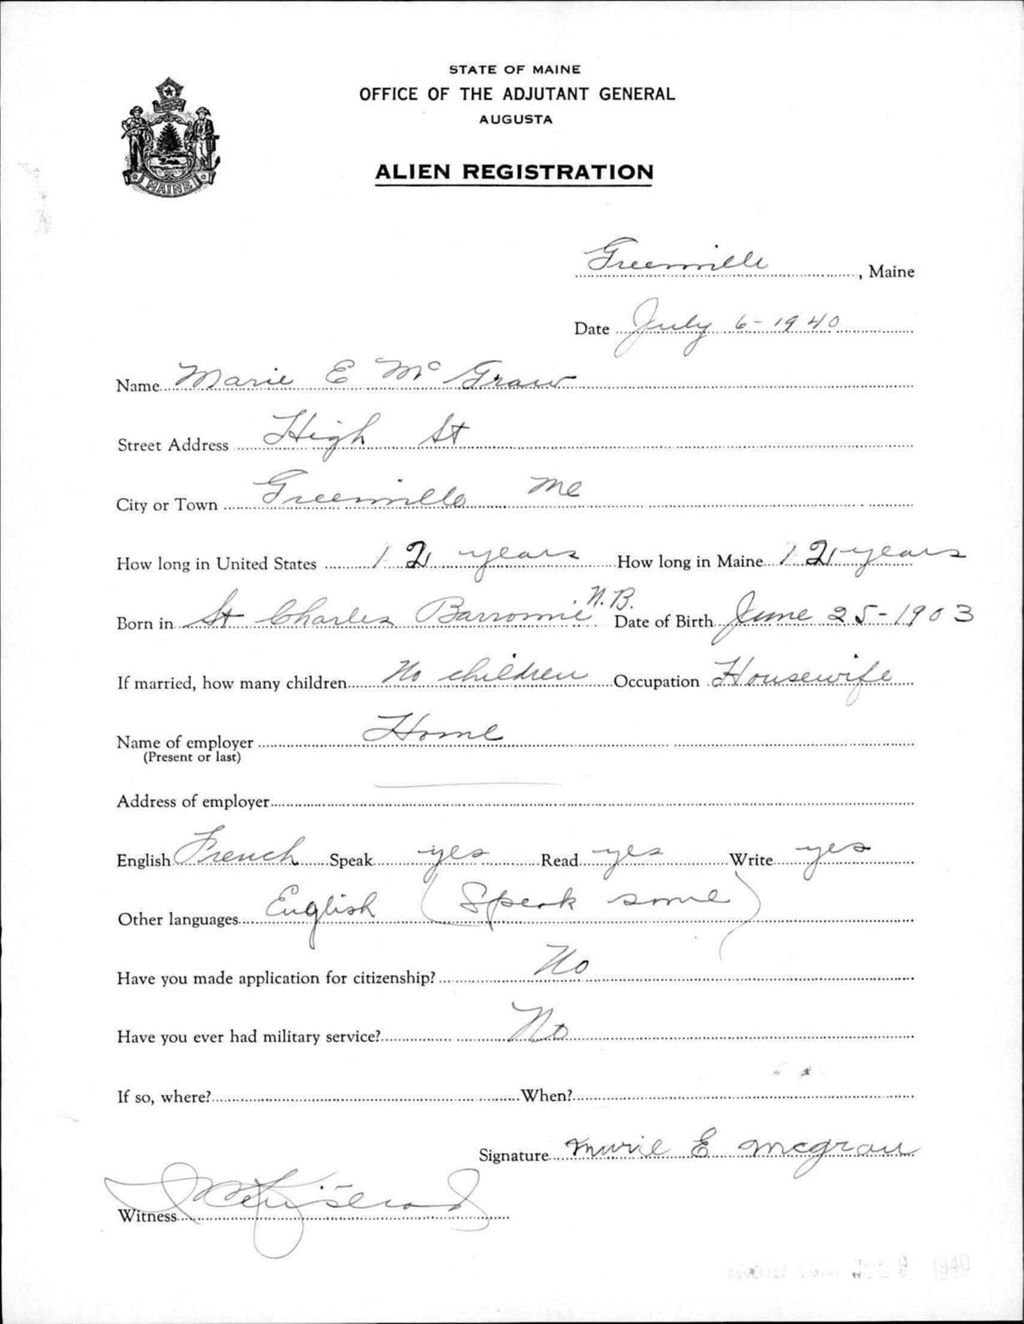 STATE OF MAINE
OFFICE OF THE ADJUTANT GENERAL
AUGUSTA
ALIEN REGISTRATION
MAINE
Greenville, Maine
Date July 6-1940
Name Marie E McGraw
Street Address High St
City or Town Greenville Me
How long in United States 12 years How long in Maine 12 years
Born in St Charles Barromie N.B. Date of Birth June 25-1903
If married, how many children No children Occupation Housewife
Name of employer Home
(Present or last)
Address of employer
English French Speak yes Read yes Write yes
Other languages English (Speak some)
Have you made application for citizenship? No
Have you ever had military service? No
If so, where? When?
Signature Marie E Mcgraw
Witness